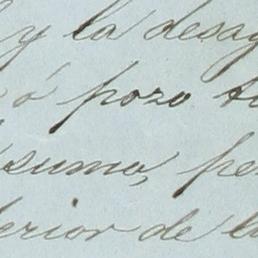 y la desag
ó pozo
sumo, pe
erior de la